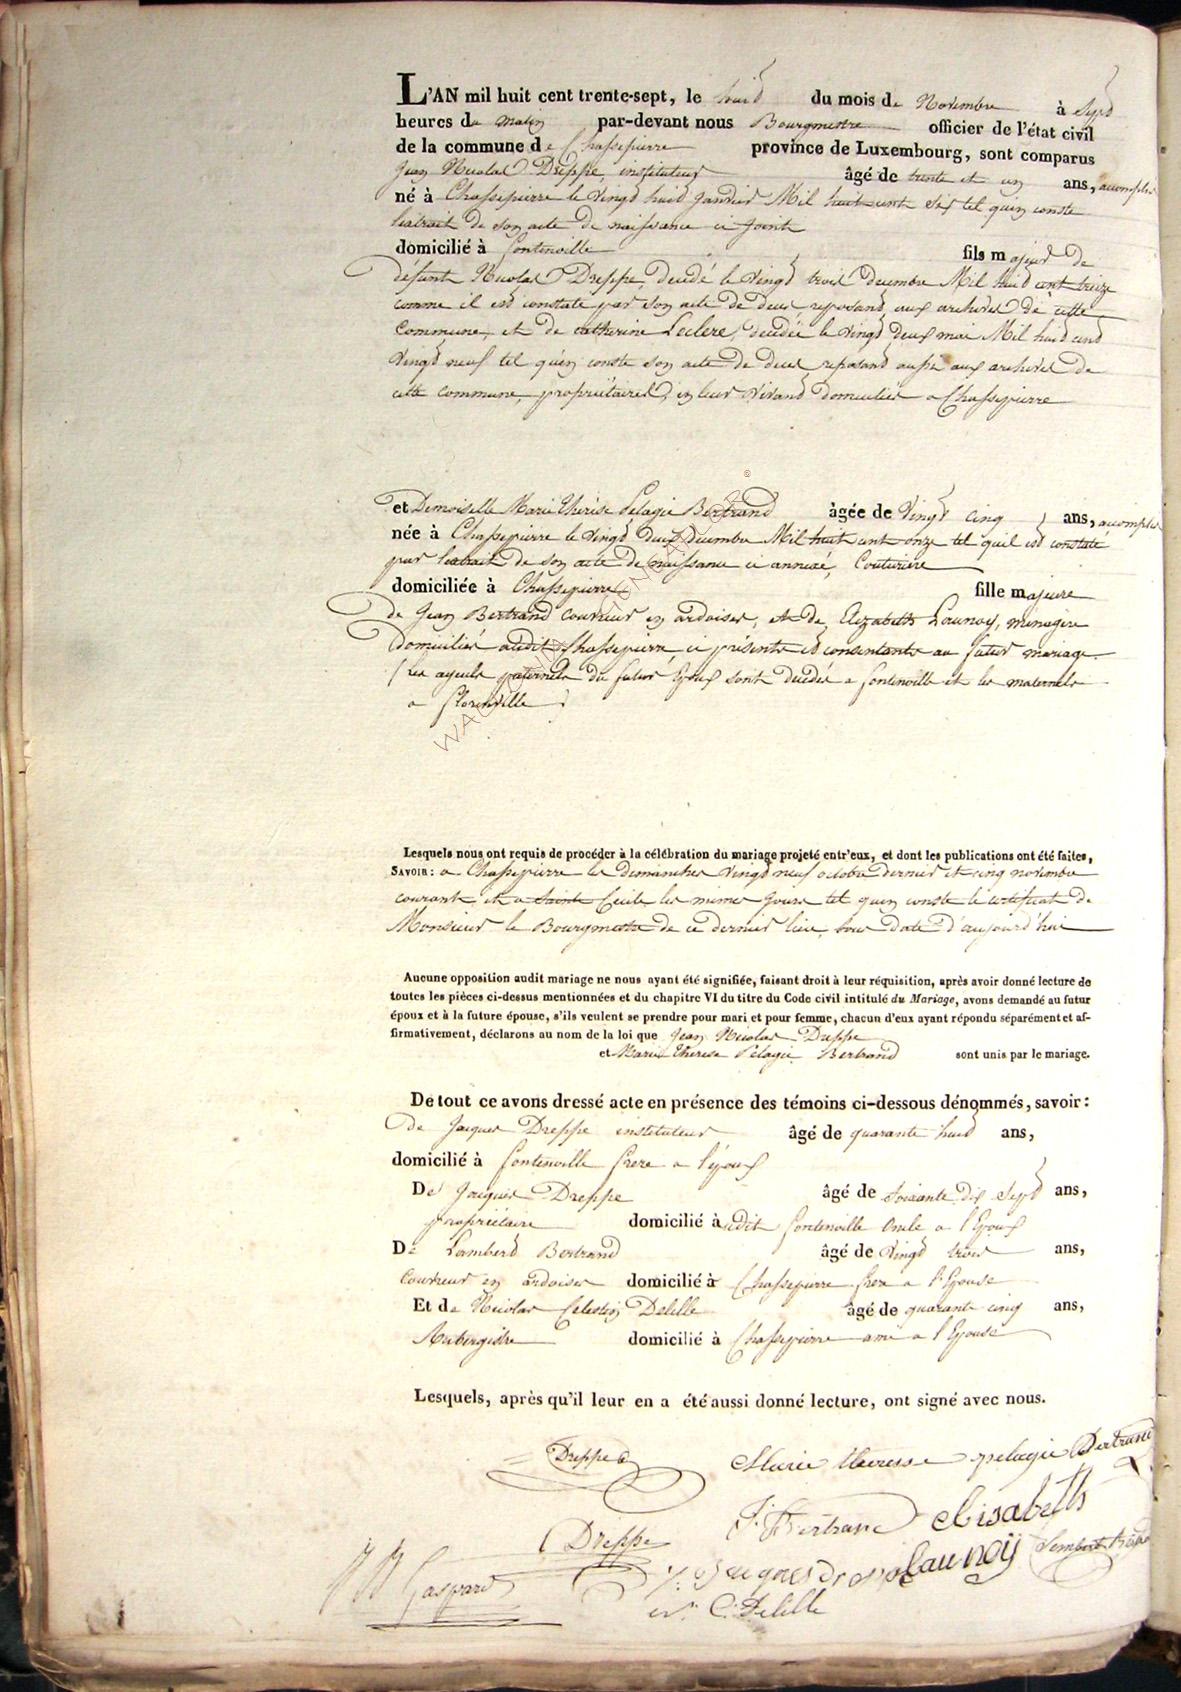 L'AN mil huit cent trente-sept, le huit du mois de Novembre à Sept
heures du matin par-devant nous Bourgmestre officier de l'état civil
de la commune de Chassepierre province de Luxembourg, sont comparus
Jean Nicolas Dreppe, instituteur âgé de trente et un ans, accomplis
né à Chassepierre le vingt huit Janvier Mil huit cent six tel qu'en conste
l'extrait de son acte de naissance ci joint
domicilié à fontenoille fils majeur de
défunt Nicolas Dreppe, decédé le vingt trois decembre Mil huit cent treize
comme il est constaté par son acte de deces, reposant aux archives de cette
commune, et de catherine Leclere, decédée le vingt deux mai Mil huit cent
vingt neuf tel qu'en conste son acte de deces reposant aussi aux archives de
cette commune, propriétaires, en leur vivant domiciliés a Chassepierre
et Demoiselle Marie Thérèse Pélagie Bertrand âgée de vingt cinq ans, accomplis
née à Chassepierre le vingt deux decembre Mil huit cent onze tel qu'il est constaté
par l'extrait de son acte de naissance ci annexé, Couturière
domiciliée à Chassepierre fille majeure
de Jean Bertrand couvreur en ardoises, et de Elizabeth Launoy, menagere
domiciliés audit Chassepierre ci présents et consentants au futur mariage.
(Les ayeuls paternels du futur Epoux sont decédés a fontenoille et les maternels
a florenville)
Lesquels nous ont requis de procéder à la célébration du mariage projeté entr'eux, et dont les publications ont été faites,
SAVOIR: a Chassepierre les dimanches vingt neuf octobre dernier et cinq novembre
courant, et a Sainte Cecile les mêmes jours tel qu'en conste le certificat de
Monsieur le Bourgmestre de ce dernier lieu, sous date d'aujourd'hui
Aucune opposition audit mariage ne nous ayant été signifiée, faisant droit à leur réquisition, après avoir donné lecture de
toutes les pièces ci-dessus mentionnées et du chapitre VI du titre du Code civil intitulé du Mariage, avons demandé au futur
époux et à la future épouse, s'ils veulent se prendre pour mari et pour femme, chacun d'eux ayant répondu séparément et af-
firmativement, déclarons au nom de la loi que Jean Nicolas Dreppe
et Marie Therese Pelagie Bertrand sont unis par le mariage.
De tout ce avons dressé acte en présence des témoins ci-dessous dénommés, savoir:
de Jacques Dreppe instituteur âgé de quarante huit ans,
domicilié à fontenoille frere a l'époux
De Jacques Dreppe âgé de soixante dix sept ans,
propriétaire domicilié audit fontenoille oncle a l'Epoux
De Lambert Bertrand âgé de vingt trois ans,
Couvreur en ardoises domicilié à Chassepierre frere a l'Epouse
Et de Nicolas Celestin Delille âgé de quarante cinq ans,
Aubergiste domicilié à Chassepierre ami a l'Epouse
Lesquels, après qu'il leur en a été aussi donné lecture, ont signé avec nous.
Dreppe Marie theresse pelagie Bertrand
J. Bertrand Elisabeth
Dreppe Launoy Lembert
Gaspard
C. Delille